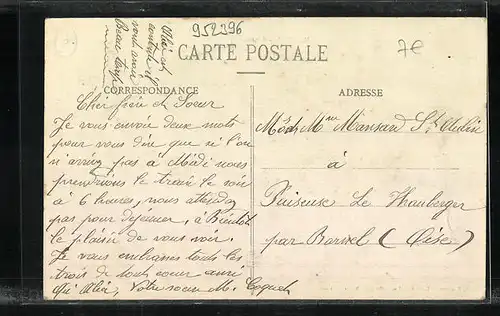 952396
7€
Olia est
contente et
Beau temps
CARTE POSTALE
CORRESPONDANCE
ADRESSE
Cher frère et Soeur
Je vous envoie deux mots
pour vous dire que si l'on
n'arrive pas à Midi nous
prendrions le train le soir
à 6 heures, nous attendez
pas pour déjeuner, à Bientôt
le plaisir de vous voir.
Je vous embrasse tous les
trois de tout coeur ainsi
Olia, Votre soeur M. Coquet
Mr Mme Mansard St Aubin
à
Puiseux Le Hauberger
par Bornel (Oise)